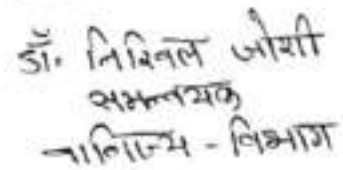 डॉ. निखिल जोशी
समन्वयक
वाणिज्य - विभाग